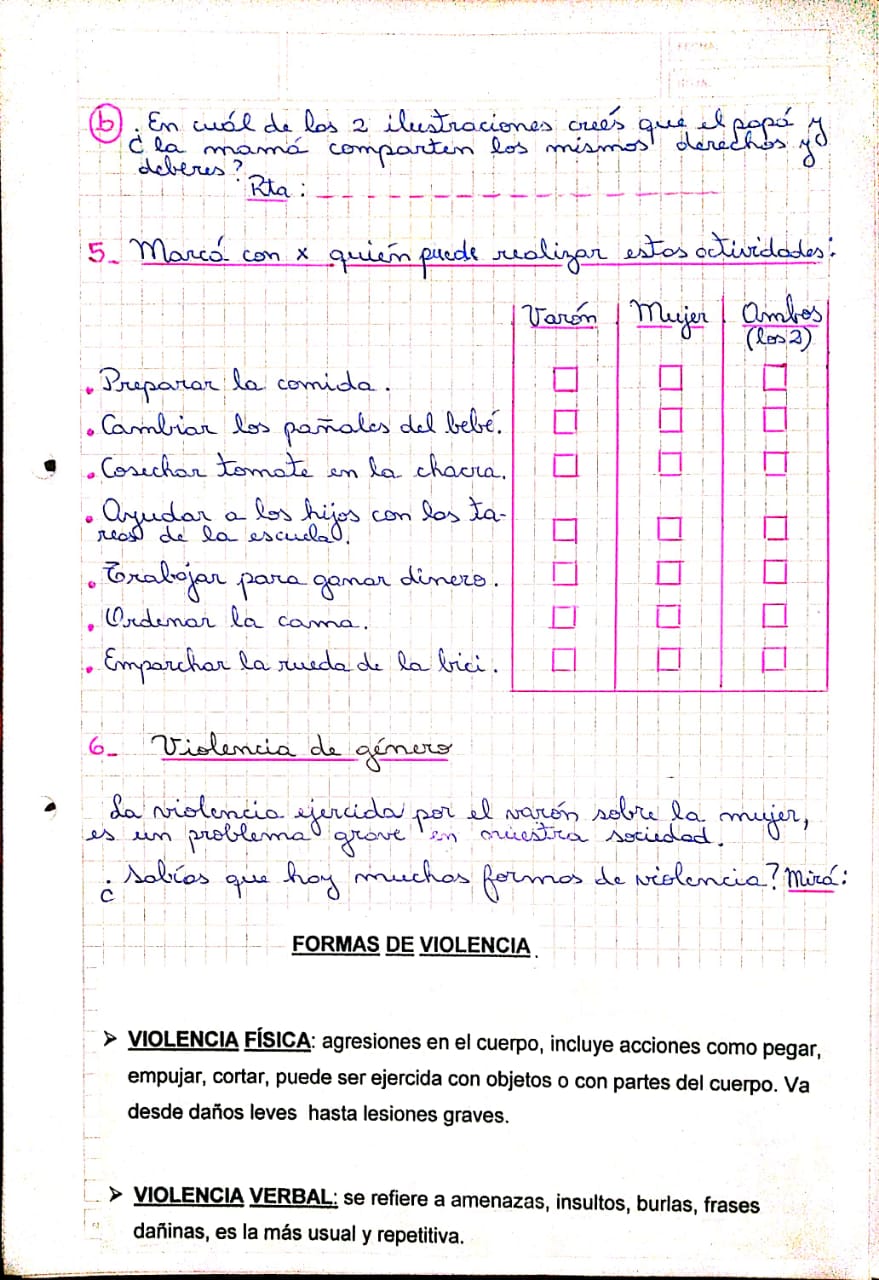 b) ¿En cuál de las 2 ilustraciones creés que el papá y
la mamá comparten los mismos derechos y
deberes?
Rta: _ _ _ _ _ _ _ _ _ _ _ _ _ _ _
5_ Marcá con x quién puede realizar estas actividades:
Varón Mujer Ambos
(los 2)
• Preparar la comida. □ □ □
• Cambiar los pañales del bebé. □ □ □
• Cosechar tomate en la chacra. □ □ □
• Ayudar a los hijos con las ta-
reas de la escuela. □ □ □
• Trabajar para ganar dinero. □ □ □
• Ordenar la cama. □ □ □
• Emparchar la rueda de la bici. □ □ □
6_ Violencia de género
La violencia ejercida por el varón sobre la mujer,
es un problema grave en nuestra sociedad.
¿Sabías que hay muchas formas de violencia? Mirá:
FORMAS DE VIOLENCIA.
➤ VIOLENCIA FÍSICA: agresiones en el cuerpo, incluye acciones como pegar,
empujar, cortar, puede ser ejercida con objetos o con partes del cuerpo. Va
desde daños leves hasta lesiones graves.
➤ VIOLENCIA VERBAL: se refiere a amenazas, insultos, burlas, frases
dañinas, es la más usual y repetitiva.